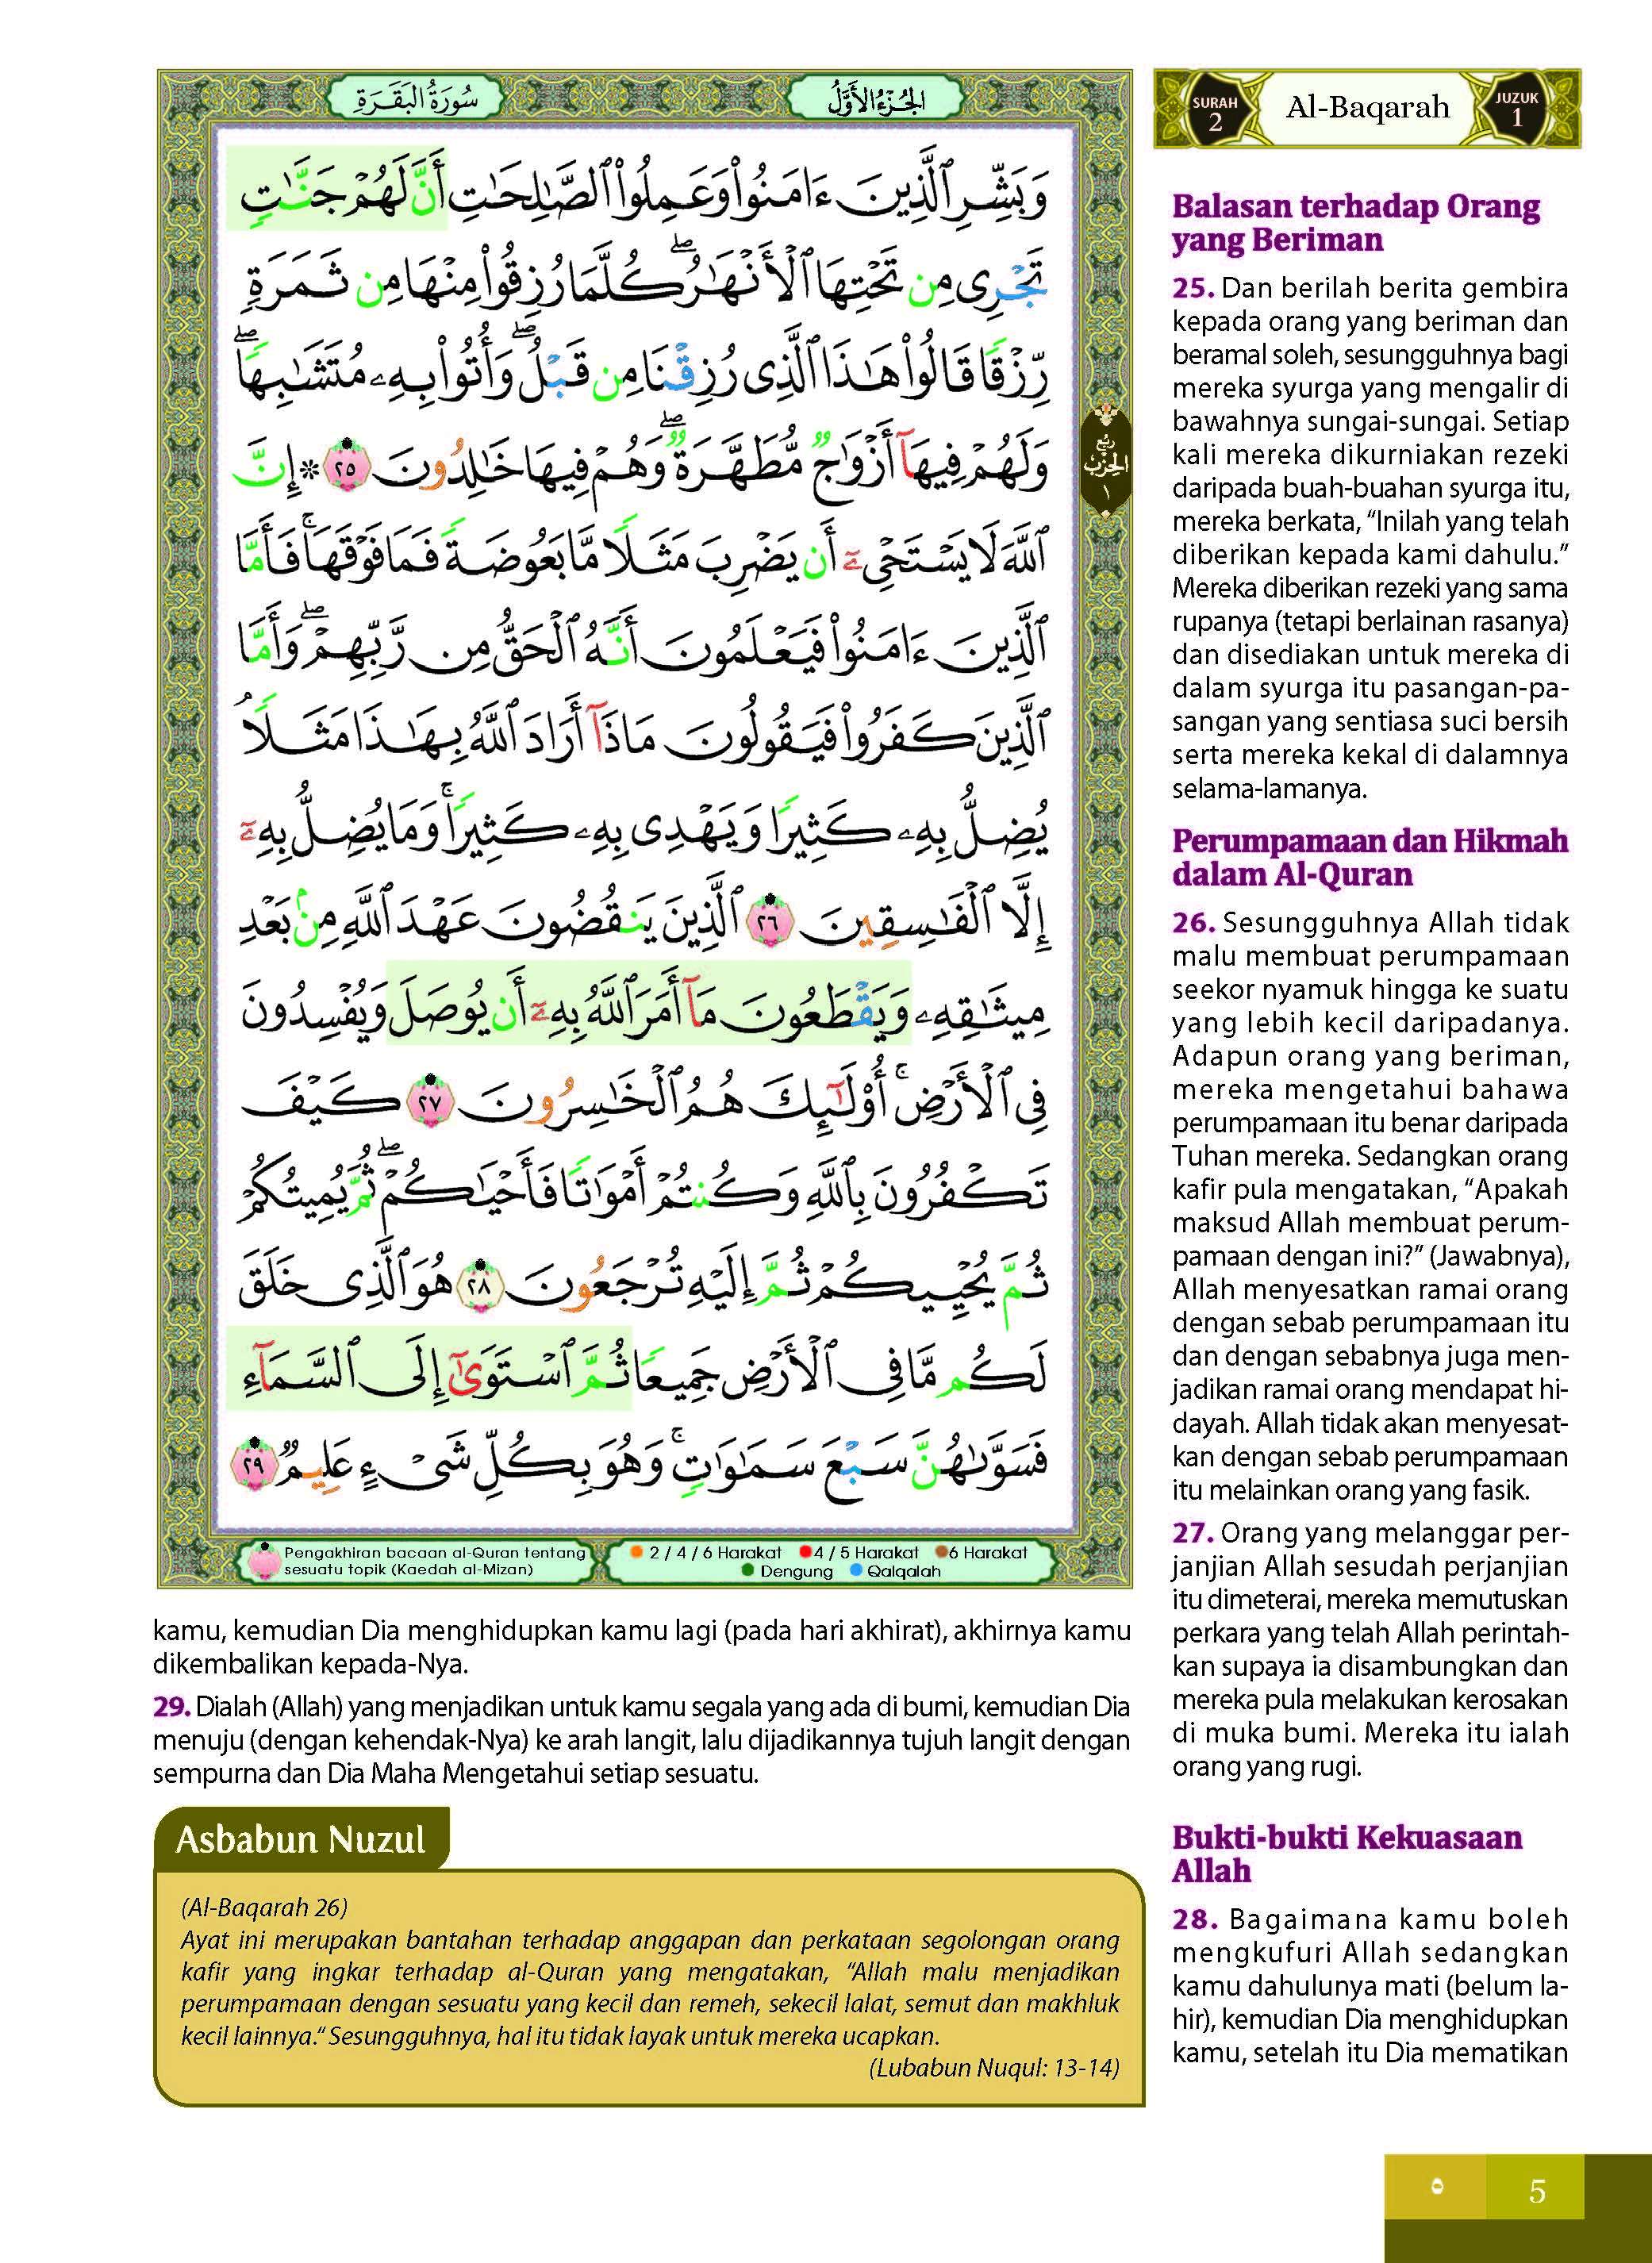 سُورَةُ البَقَرَةِ
الجُزْءُ الأَوَّلُ
SURAH
2
Al-Baqarah
JUZUK
1
وَبَشِّرِ ٱلَّذِينَ ءَامَنُوا۟ وَعَمِلُوا۟ ٱلصَّـٰلِحَـٰتِ أَنَّ لَهُمْ جَنَّـٰتٍ
تَجْرِى مِن تَحْتِهَا ٱلْأَنْهَـٰرُ ۖ كُلَّمَا رُزِقُوا۟ مِنْهَا مِن ثَمَرَةٍ
رِّزْقًا قَالُوا۟ هَـٰذَا ٱلَّذِى رُزِقْنَا مِن قَبْلُ ۖ وَأُتُوا۟ بِهِۦ مُتَشَـٰبِهًا ۖ
وَلَهُمْ فِيهَآ أَزْوَٰجٌ مُّطَهَّرَةٌ ۖ وَهُمْ فِيهَا خَـٰلِدُونَ ٢٥ * إِنَّ
ٱللَّهَ لَا يَسْتَحْىِۦٓ أَن يَضْرِبَ مَثَلًا مَّا بَعُوضَةً فَمَا فَوْقَهَا ۚ فَأَمَّا
ٱلَّذِينَ ءَامَنُوا۟ فَيَعْلَمُونَ أَنَّهُ ٱلْحَقُّ مِن رَّبِّهِمْ ۖ وَأَمَّا
ٱلَّذِينَ كَفَرُوا۟ فَيَقُولُونَ مَاذَآ أَرَادَ ٱللَّهُ بِهَـٰذَا مَثَلًا ۘ
يُضِلُّ بِهِۦ كَثِيرًا وَيَهْدِى بِهِۦ كَثِيرًا ۚ وَمَا يُضِلُّ بِهِۦٓ
إِلَّا ٱلْفَـٰسِقِينَ ٢٦ ٱلَّذِينَ يَنقُضُونَ عَهْدَ ٱللَّهِ مِنۢ بَعْدِ
مِيثَـٰقِهِۦ وَيَقْطَعُونَ مَآ أَمَرَ ٱللَّهُ بِهِۦٓ أَن يُوصَلَ وَيُفْسِدُونَ
فِى ٱلْأَرْضِ ۚ أُو۟لَـٰٓئِكَ هُمُ ٱلْخَـٰسِرُونَ ٢٧ كَيْفَ
تَكْفُرُونَ بِٱللَّهِ وَكُنتُمْ أَمْوَٰتًا فَأَحْيَـٰكُمْ ۖ ثُمَّ يُمِيتُكُمْ
ثُمَّ يُحْيِيكُمْ ثُمَّ إِلَيْهِ تُرْجَعُونَ ٢٨ هُوَ ٱلَّذِى خَلَقَ
لَكُم مَّا فِى ٱلْأَرْضِ جَمِيعًا ثُمَّ ٱسْتَوَىٰٓ إِلَى ٱلسَّمَآءِ
فَسَوَّىٰهُنَّ سَبْعَ سَمَـٰوَٰتٍ ۚ وَهُوَ بِكُلِّ شَىْءٍ عَلِيمٌ ٢٩
ربع
الحزب
١
Pengakhiran bacaan al-Quran tentang
sesuatu topik (Kaedah al-Mizan)
2 / 4 / 6 Harakat 4 / 5 Harakat 6 Harakat
Dengung Qalqalah
Balasan terhadap Orang
yang Beriman
25. Dan berilah berita gembira
kepada orang yang beriman dan
beramal soleh, sesungguhnya bagi
mereka syurga yang mengalir di
bawahnya sungai-sungai. Setiap
kali mereka dikurniakan rezeki
daripada buah-buahan syurga itu,
mereka berkata, “Inilah yang telah
diberikan kepada kami dahulu.”
Mereka diberikan rezeki yang sama
rupanya (tetapi berlainan rasanya)
dan disediakan untuk mereka di
dalam syurga itu pasangan-pa-
sangan yang sentiasa suci bersih
serta mereka kekal di dalamnya
selama-lamanya.
Perumpamaan dan Hikmah
dalam Al-Quran
26. Sesungguhnya Allah tidak
malu membuat perumpamaan
seekor nyamuk hingga ke suatu
yang lebih kecil daripadanya.
Adapun orang yang beriman,
mereka mengetahui bahawa
perumpamaan itu benar daripada
Tuhan mereka. Sedangkan orang
kafir pula mengatakan, “Apakah
maksud Allah membuat perum-
pamaan dengan ini?” (Jawabnya),
Allah menyesatkan ramai orang
dengan sebab perumpamaan itu
dan dengan sebabnya juga men-
jadikan ramai orang mendapat hi-
dayah. Allah tidak akan menyesat-
kan dengan sebab perumpamaan
itu melainkan orang yang fasik.
27. Orang yang melanggar per-
janjian Allah sesudah perjanjian
itu dimeterai, mereka memutuskan
perkara yang telah Allah perintah-
kan supaya ia disambungkan dan
mereka pula melakukan kerosakan
di muka bumi. Mereka itu ialah
orang yang rugi.
Bukti-bukti Kekuasaan
Allah
28. Bagaimana kamu boleh
mengkufuri Allah sedangkan
kamu dahulunya mati (belum la-
hir), kemudian Dia menghidupkan
kamu, setelah itu Dia mematikan
kamu, kemudian Dia menghidupkan kamu lagi (pada hari akhirat), akhirnya kamu
dikembalikan kepada-Nya.
29. Dialah (Allah) yang menjadikan untuk kamu segala yang ada di bumi, kemudian Dia
menuju (dengan kehendak-Nya) ke arah langit, lalu dijadikannya tujuh langit dengan
sempurna dan Dia Maha Mengetahui setiap sesuatu.
Asbabun Nuzul
(Al-Baqarah 26)
Ayat ini merupakan bantahan terhadap anggapan dan perkataan segolongan orang
kafir yang ingkar terhadap al-Quran yang mengatakan, “Allah malu menjadikan
perumpamaan dengan sesuatu yang kecil dan remeh, sekecil lalat, semut dan makhluk
kecil lainnya.“ Sesungguhnya, hal itu tidak layak untuk mereka ucapkan.
(Lubabun Nuqul: 13-14)
٥
5